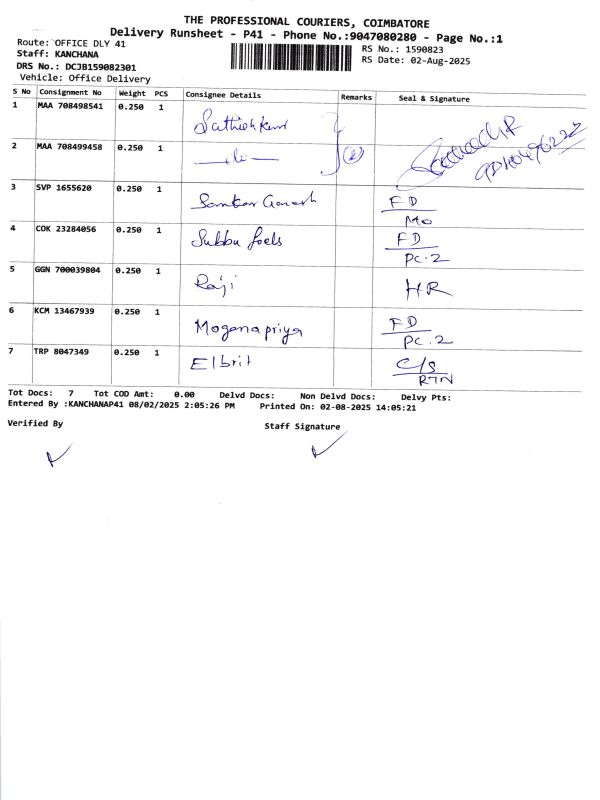 THE PROFESSIONAL COURIERS, COIMBATORE
Delivery Runsheet - P41 - Phone No.:9047080280 - Page No.:1
Route: OFFICE DLY 41
Staff: KANCHANA
DRS No.: DCJB159082301
Vehicle: Office Delivery
RS No.: 1590823
RS Date: 02-Aug-2025
S No Consignment No Weight PCS Consignee Details Remarks Seal & Signature
1 MAA 708498541 0.250 1 Sathish Kumar
2 MAA 708499458 0.250 1 (2)
3 SVP 1655620 0.250 1 Sankar Ganesh FD
MO
4 COK 23284056 0.250 1 Subbu foels FD
PC.2
5 GGN 700039804 0.250 1 Raji HR
6 KCM 13467939 0.250 1 Moganapriya FD
PC.2
7 TRP 8047349 0.250 1 Elbrit C/S
RTN
Tot Docs: 7 Tot COD Amt: 0.00 Delvd Docs: Non Delvd Docs: Delvy Pts:
Entered By :KANCHANAP41 08/02/2025 2:05:26 PM Printed On: 02-08-2025 14:05:21
Verified By Staff Signature